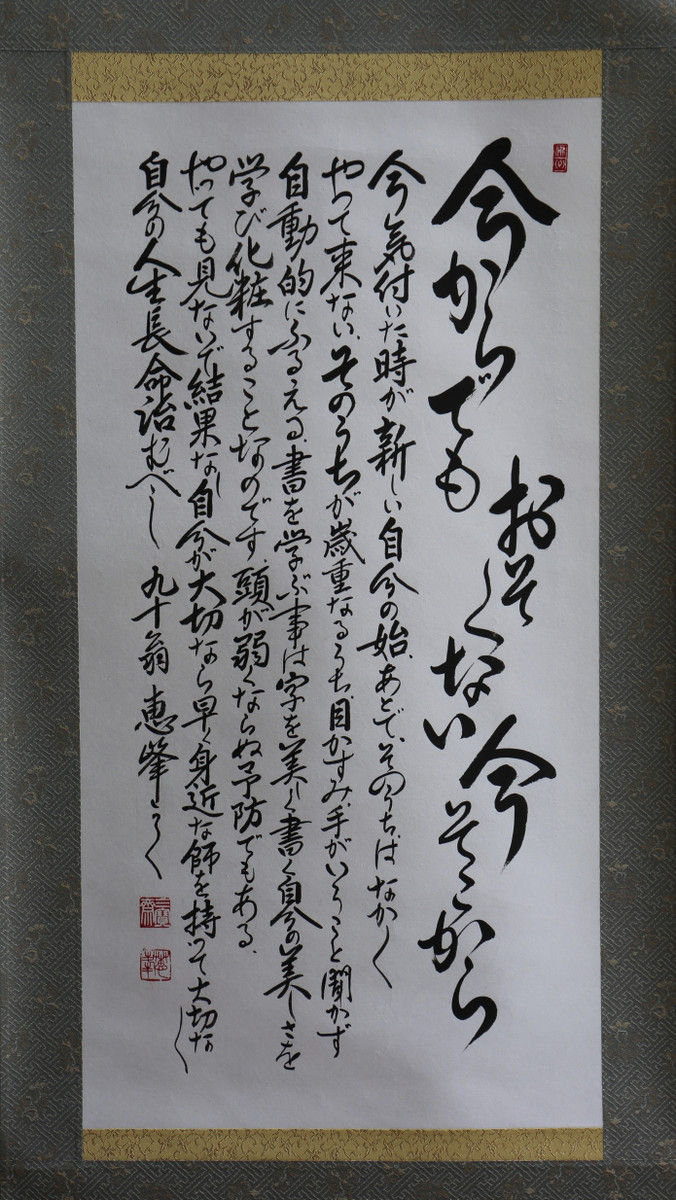 今からでも
おそくない
今そこから
今気付いた時が新しい自分の始、あとで、そのうち、はなか〱
やって来ない、そのうちが歳重なるうち、目かすみ、手がいうこと聞かず
自動的にふるえる、書を学ぶ事は字を美しく書く自分の美しさを
学び化粧することなのです 頭が弱くならぬ予防でもある、
やっても見ないで結果なし自分が大切なら早く身近な師を持って大切な〱
自分の人生長命治むべし 九十翁 恵峰